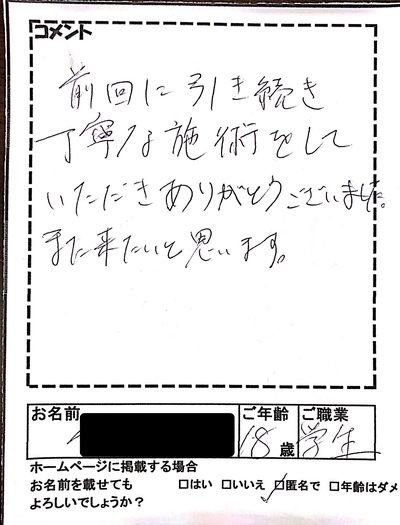 コメント
前回に引き続き
丁寧な施術をして
いただきありがとうございました。
また来たいと思います。
お名前
ご年齢 ご職業
18歳 学生
ホームページに掲載する場合
お名前を載せても
よろしいでしょうか?
□はい □いいえ ☑匿名で □年齢はダメ